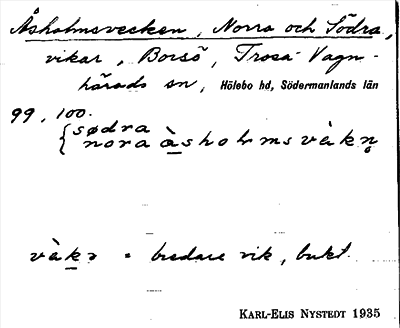 Åsholmsvecken, Norra och Södra,
vikar, Borsö, Trosa-Vagn-
härads sn, Hölebo hd, Södermanlands län
99, 100.
{ södra
nora àsholmsvàkn̥
vàkə = bredare vik, bukt.
KARL-ELIS NYSTEDT 1935